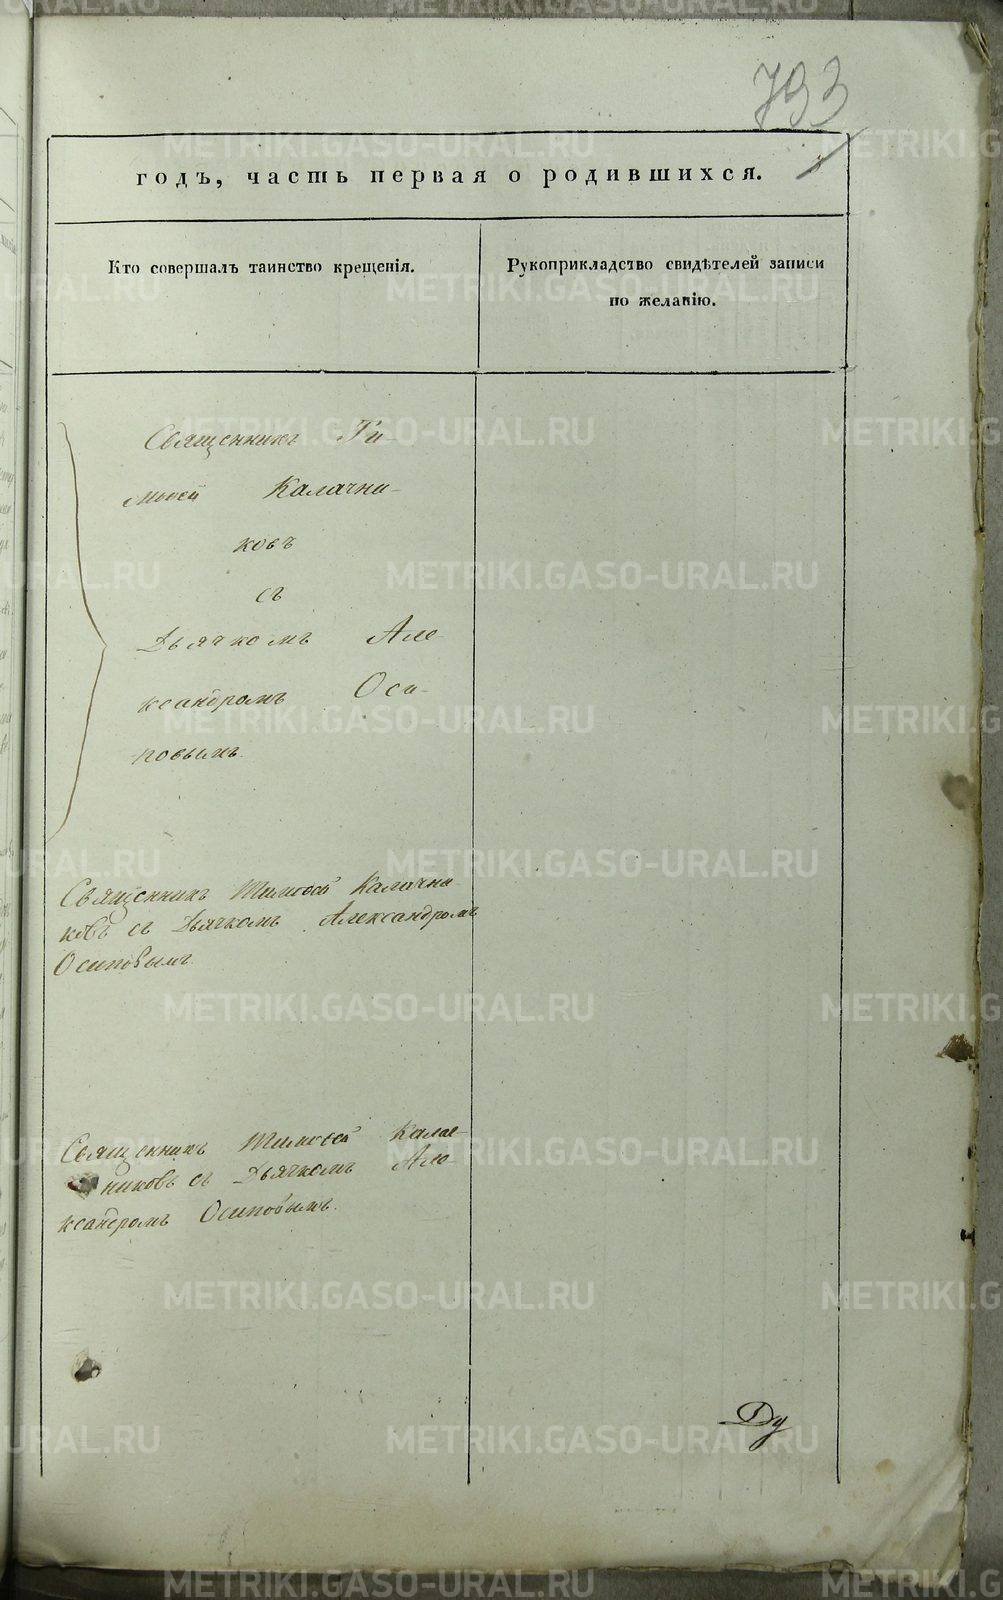 793
годъ, часть первая о родившихся.
Кто совершалъ таинство крещенія.
Рукоприкладство свидѣтелей записи
по желанію.
Священникъ Ти-
моѳей Калачни-
ковъ
съ
Дьячкомъ Але
ксандромъ Оси-
повымъ.
Священникъ Тимоѳей Калачни-
ковъ съ Дьячкомъ Александромъ
Осиповымъ.
Священникъ Тимоѳей Калач-
никовъ съ Дьячкомъ Але-
ксандромъ Осиповымъ.
Ду
METRIKI.GASO-URAL.RU